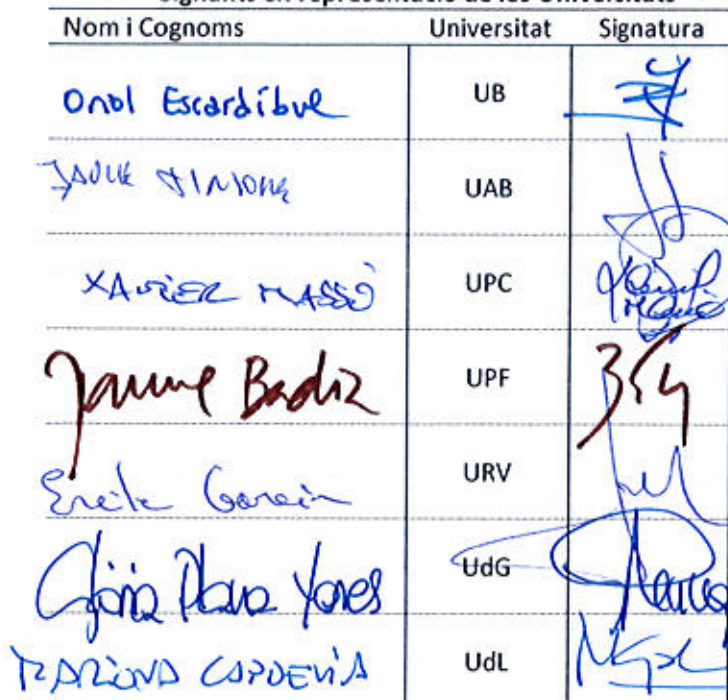 Signants en representació de les Universitats
Nom i Cognoms Universitat Signatura
Oriol Escardíbul UB
Jaume UAB
XAVIER MASSÓ UPC
Jaume Badia UPF
Garcia URV
Glòria Plana Yanes UdG
MARIONA CAPDEVILA UdL